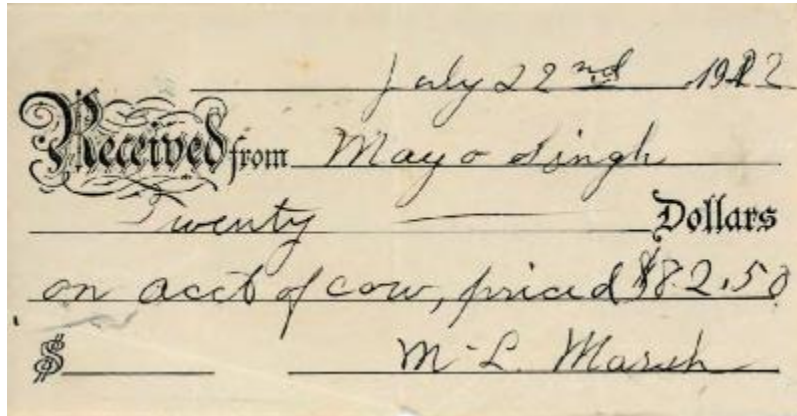 July 22nd 1912
Received from Mayo Singh
Twenty Dollars
on acct of cow, priced $82.50
$ M. L. Marsh